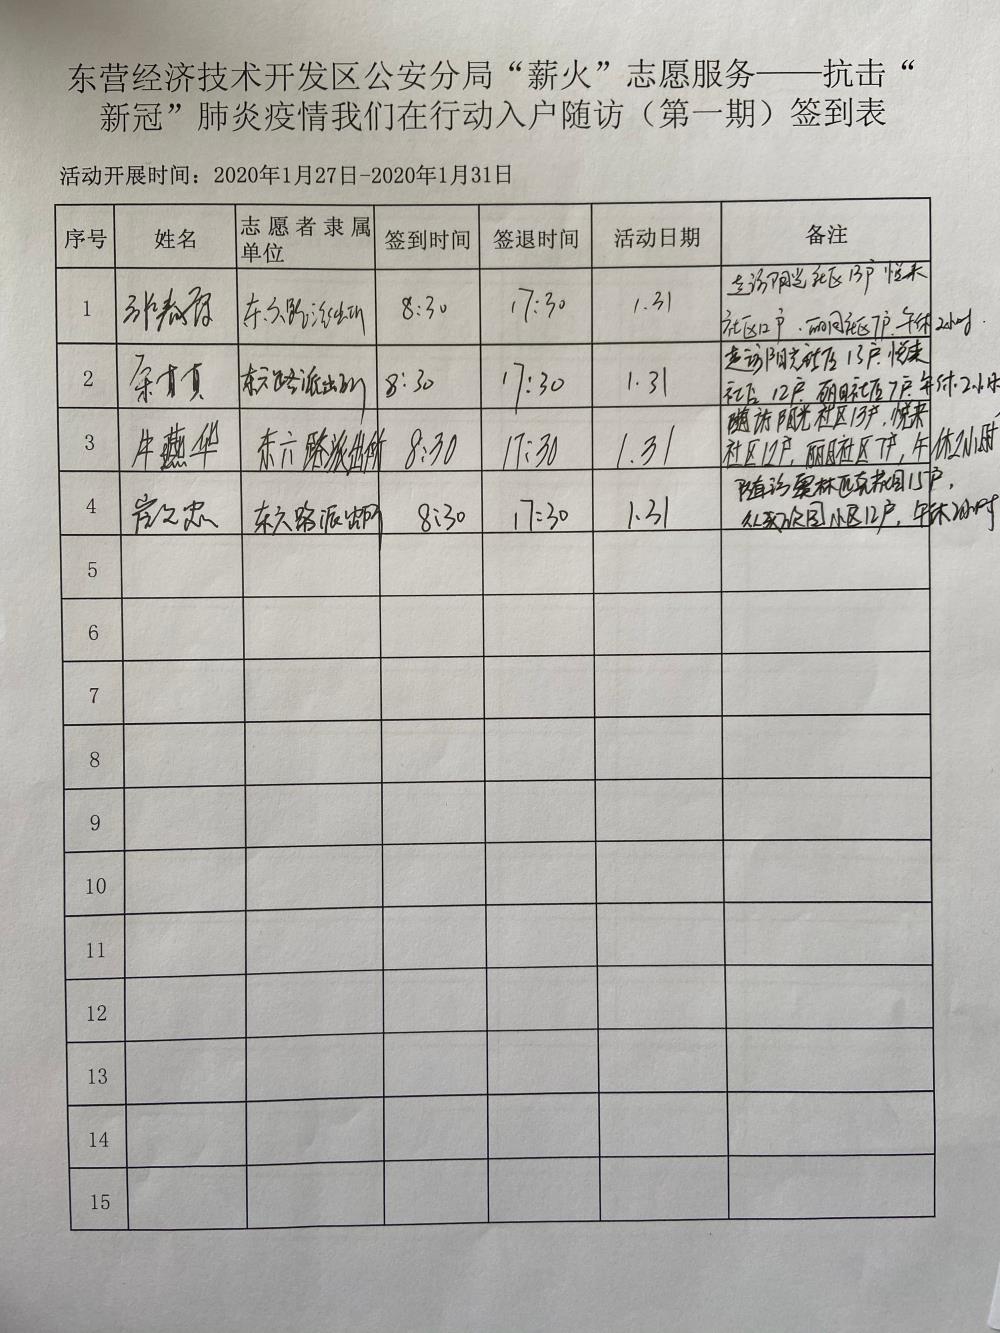 东营经济技术开发区公安分局“薪火”志愿服务——抗击“
新冠”肺炎疫情我们在行动入户随访（第一期）签到表
活动开展时间：2020年1月27日-2020年1月31日
序号 姓名 志愿者隶属单位 签到时间 签退时间 活动日期 备注
1 东六路派出所 8:30 17:30 1.31 走访阳光社区13户 悦来
社区12户．丽日社区7户．午休2小时
2 东六路派出所 8:30 17:30 1.31 走访阳光社区13户．悦来
社区12户．丽日社区7户．午休2小时
3 牛燕华 东六路派出所 8:30 17:30 1.31 随访阳光社区13户，悦来
社区12户，丽日社区7户，午休2小时
4 东六路派出所 8:30 17:30 1.31 随访奥林匹克花园15户，
小区12户，午休2小时
5
6
7
8
9
10
11
12
13
14
15